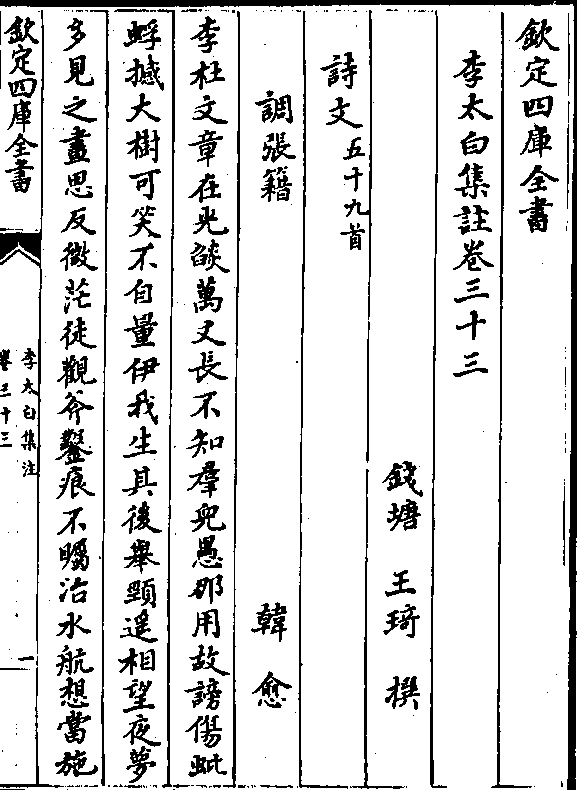 欽定四庫全書
李太白集註卷三十三
錢塘 王琦 撰
詩文五十九首
調張籍 韓愈
李杜文章在光燄萬丈長不知羣兒愚那用故謗傷蚍
蜉撼大樹可笑不自量伊我生其後舉頸遥相望夜夢
多見之晝思反微茫徒觀斧鑿痕不矚治水航想當施
欽定四庫全書
李太白集注
卷三十三
一